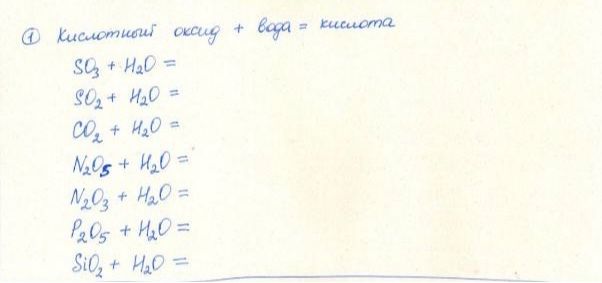 ① Кислотный оксид + вода = кислота
SO₃ + H₂O =
SO₂ + H₂O =
CO₂ + H₂O =
N₂O₅ + H₂O =
N₂O₃ + H₂O =
P₂O₅ + H₂O =
SiO₂ + H₂O =